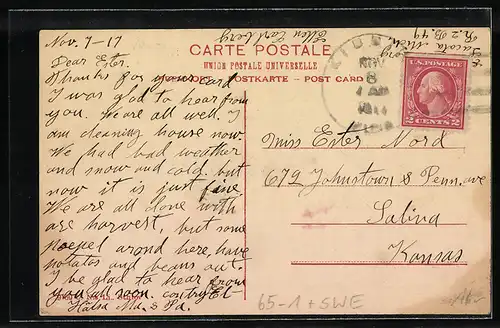 Nov. 7-17
Dear Ester.
Thanks for your card
I was glad to hear from
you. We are all well. I
am cleaning house now
We had bad weather
and snow and cold. but
now it is just fine.
We are all done with
are harvest, but some
peopel arond here, have
potatos and beans out.
I be glad to hear from
you all soon.
Hälsa Ma. & Pa.
Ellen Carlberg
R. 2 B. 49
CARTE POSTALE
UNION POSTALE UNIVERSELLE
POSTKARTE - POST CARD
NOV
8
U.S. POSTAGE
2 CENTS 2
Miss Ester Nord
679 Johnstown & Penn. ave
Salina
Kansas
65-1 + SWE